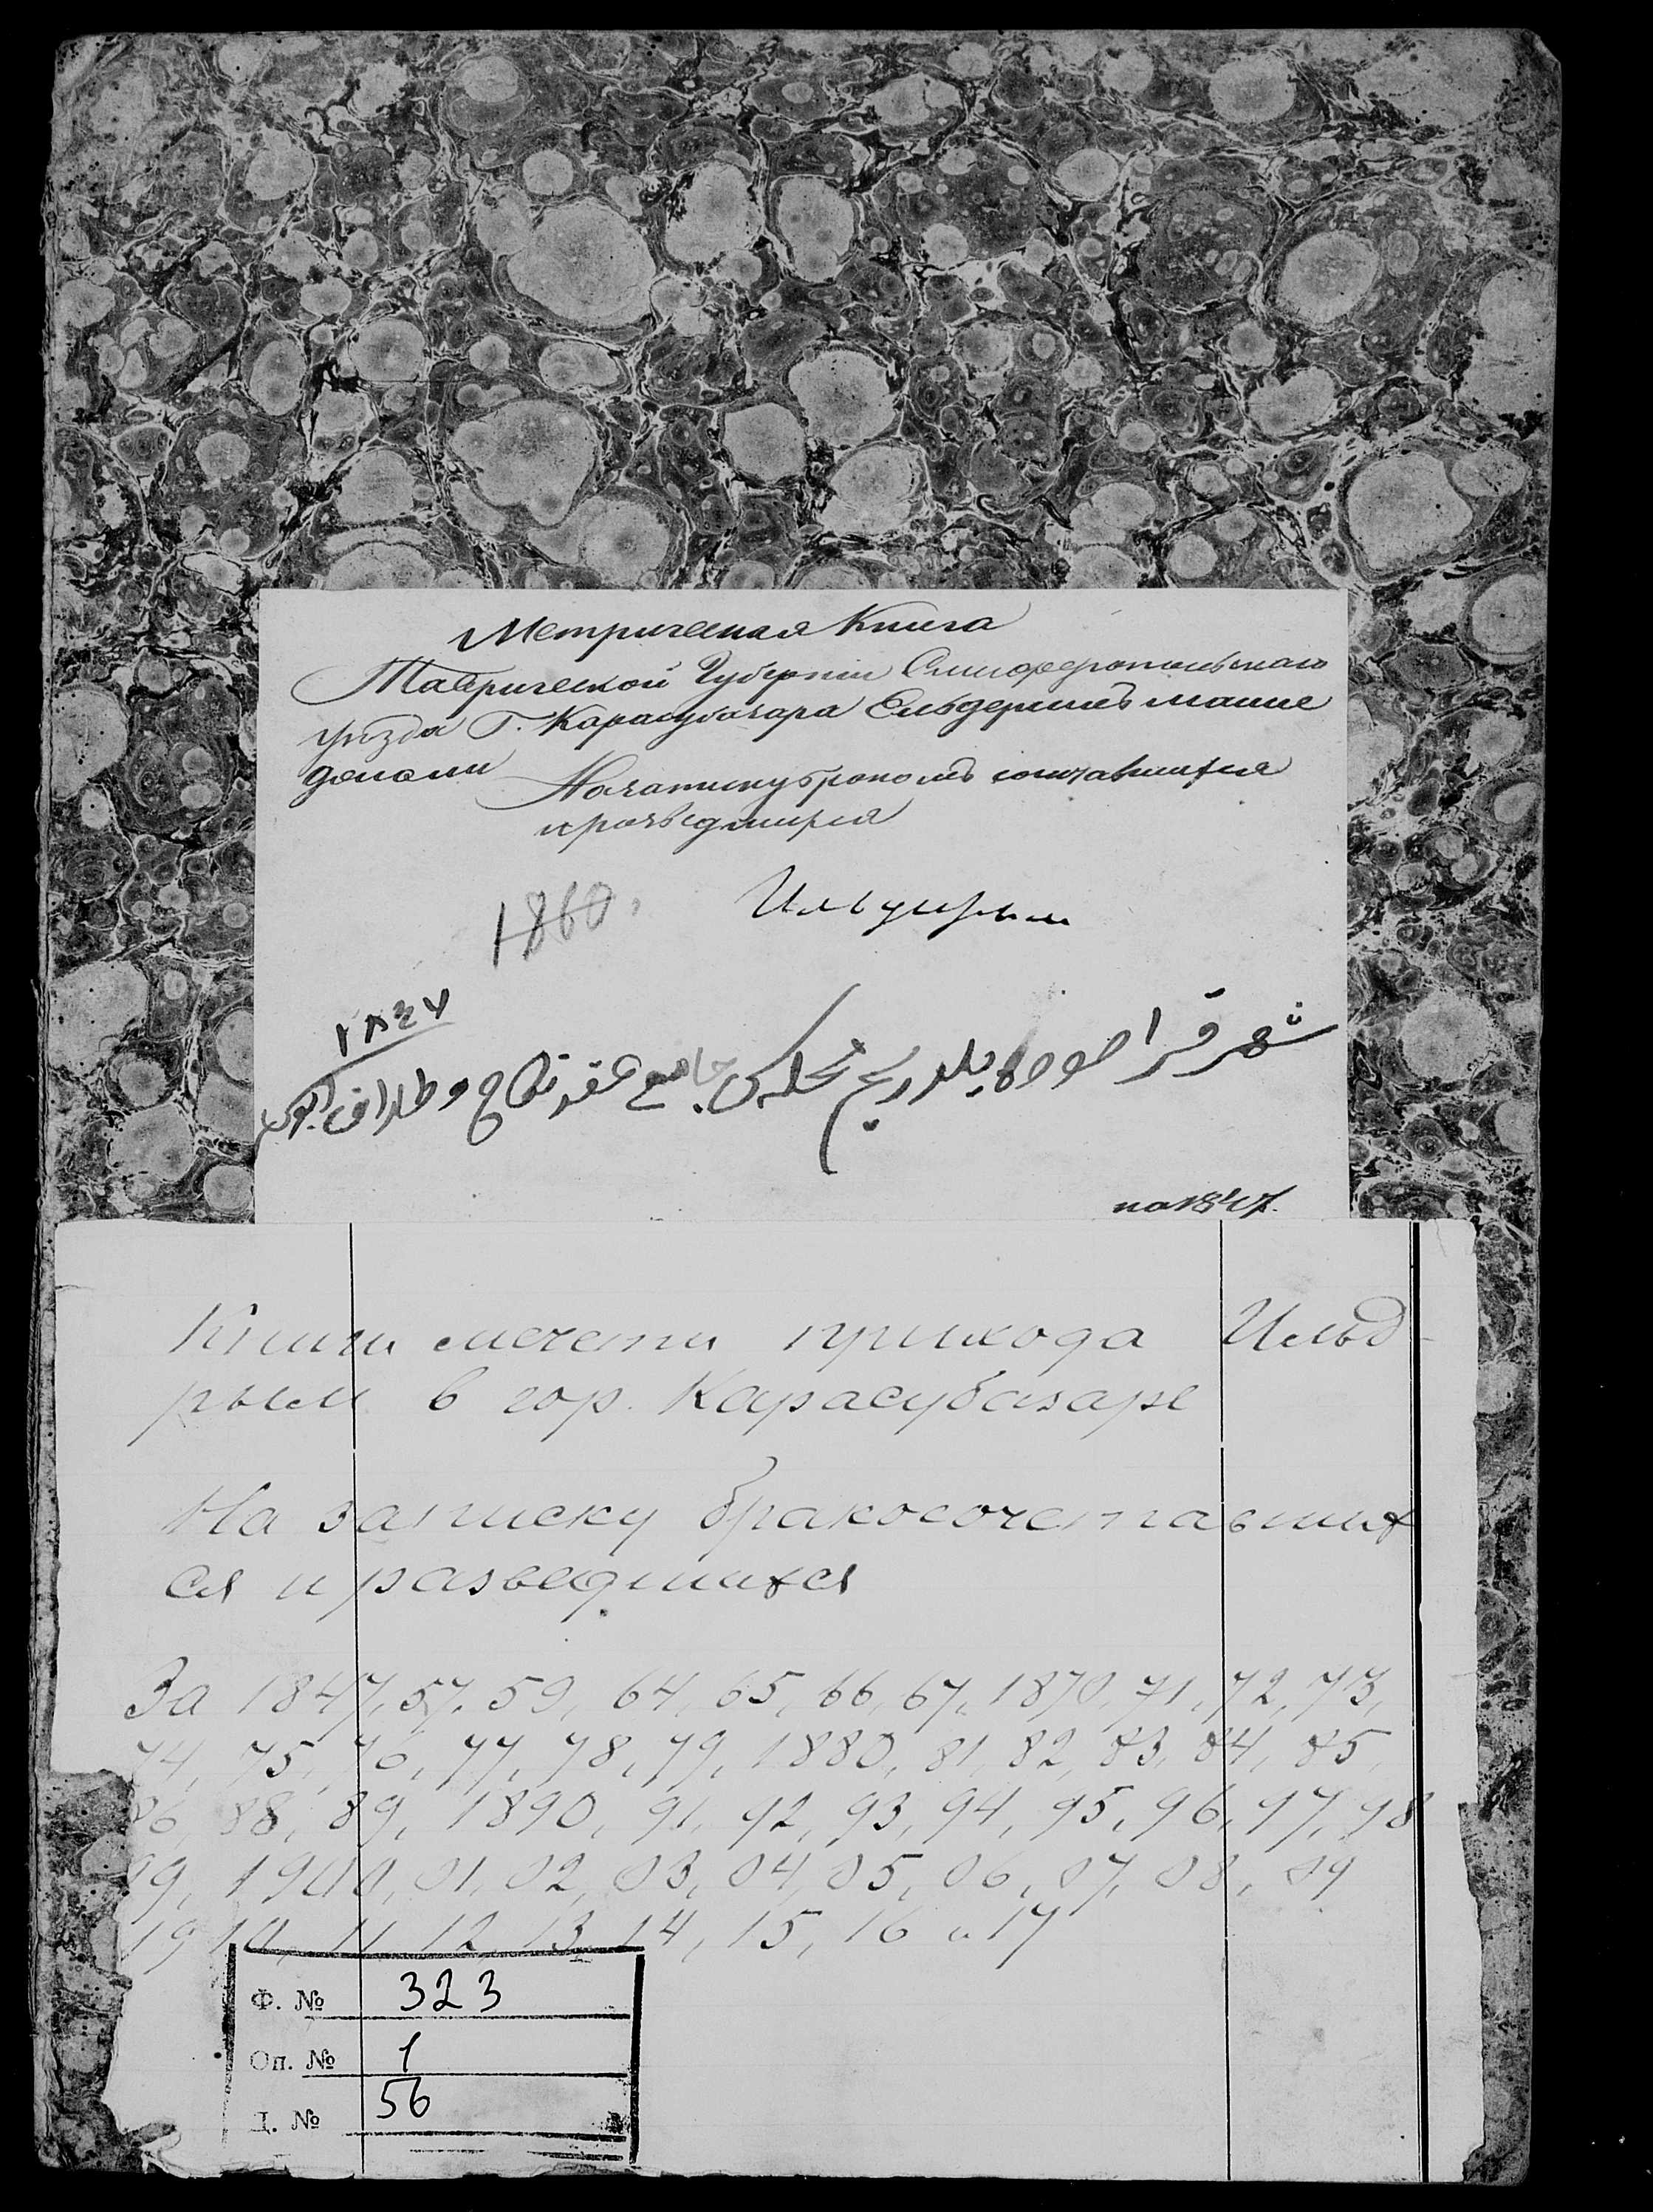 Метрическая Книга
Таврической Губернии Симферопольскаго
уезда Г. Карасубазара Ельдеримъ
сочтавшихся
1860.
۱۸٤۷
شهر قراصو يلدريم محله سى جامع عقد نكاح و طلاق
на 1847.
Книги мечети прихода Ильд-
рым в гор. Карасубазаре
На записку бракосочетавших
ся и разведшихся
За 1847, 57, 59, 64, 65, 66, 67, 1870, 71, 72, 73,
74, 75, 76, 77, 78, 79, 1880, 81, 82, 83, 84, 85,
86, 88, 89, 1890, 91, 92, 93, 94, 95, 96, 97, 98
99, 1900, 01, 02, 03, 04, 05, 06, 07, 08, 09
1910, 11, 12, 13, 14, 15, 16 и 17
Ф. № 323
Оп. № 1
Д. № 56